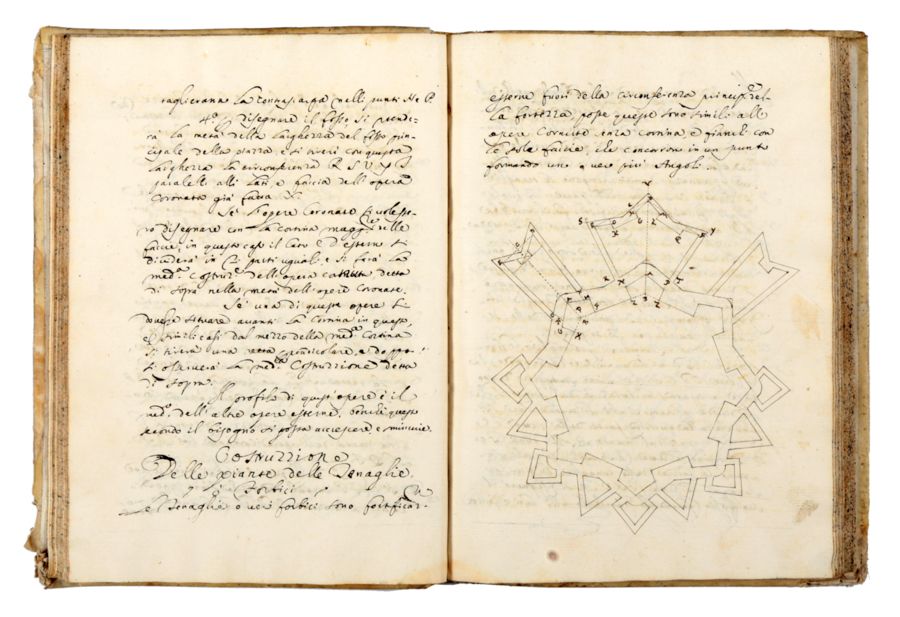 taglieranno la                nelli punti N e P.
4º p disegnare il fosso si prende-
rà la metà della larghezza del fosso prin-
cipale della piazza, e si tirerà con questa
larghezza la circonferenza R S V X
paralella alli lati, e faccia dell'opera
Coronata già fatta.
Se l'opere Coronate si volesse-
ro disegnare con la cortina magg.re nelle
faccie, in questo caso il lato   d'esterno si
dividerà in   parti uguali, e si farà la
med.ª Costruz.e dell'opera       detta
di sopra nella metà dell'opere Coronate.
Se una di queste opere si
dovesse situare avanti la Cortina in questo,
e simili casi dal mezzo della med.ª Cortina
si tirerà una retta p̱endicolare, e doppo
si osserverà la med.ª Costruzzione detta
di sopra.
Il profilo di quest'opere è il
med.º dell'altre opere esterne, benche questo
secondo il bisogno si possa accrescere, e minuire.
Costruzzione
Delle piante delle Tenaglie
ò Forbici
Le Tenaglie o ver forbici sono fortificaz-
esterne fuori della circonferenza principal del-
la fortezza, poste queste sono simili all'
opere Cornute senza cortina, e fianchi con
le sole faccie, che concorrono in un punto
formando uno, o ver più Angoli.